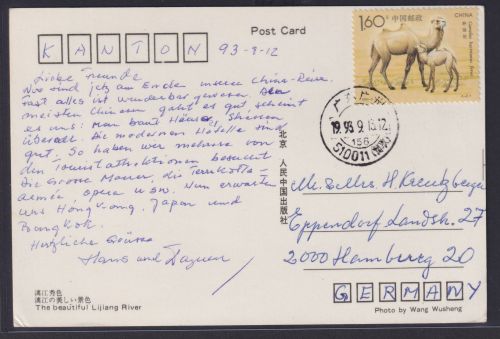 Post Card
KANTON 93-9-12
Liebe Freunde
Nun sind jetz am Ende unsere China-Reise.
Fast alles ist wunderbar gewesen. Den
meisten Chinesen geht es gut scheint
es uns. Man baut Häuser, Strassen
überall. Die modernen Hotelle sind
gut. So haben wir mehrere von
den Touristattraktionen besucht
Die Grosse Mauer, die Terrakotta-
Armée, opera usw. Nun erwarten
uns Hongkong, Japan und
Bangkok.
Herzliche Grüsse
Hans und
漓江秀色
漓江の美しい景色
The beautiful Lijiang River
北京 人民中国出版社
1.60元 中国邮政
CHINA
野骆驼
1993.9.13.12
156
510011
H. Kreutzberger
Eppendorf Landstr. 27
2000 Hamburg 20
GERMANY
Photo by Wang Wusheng